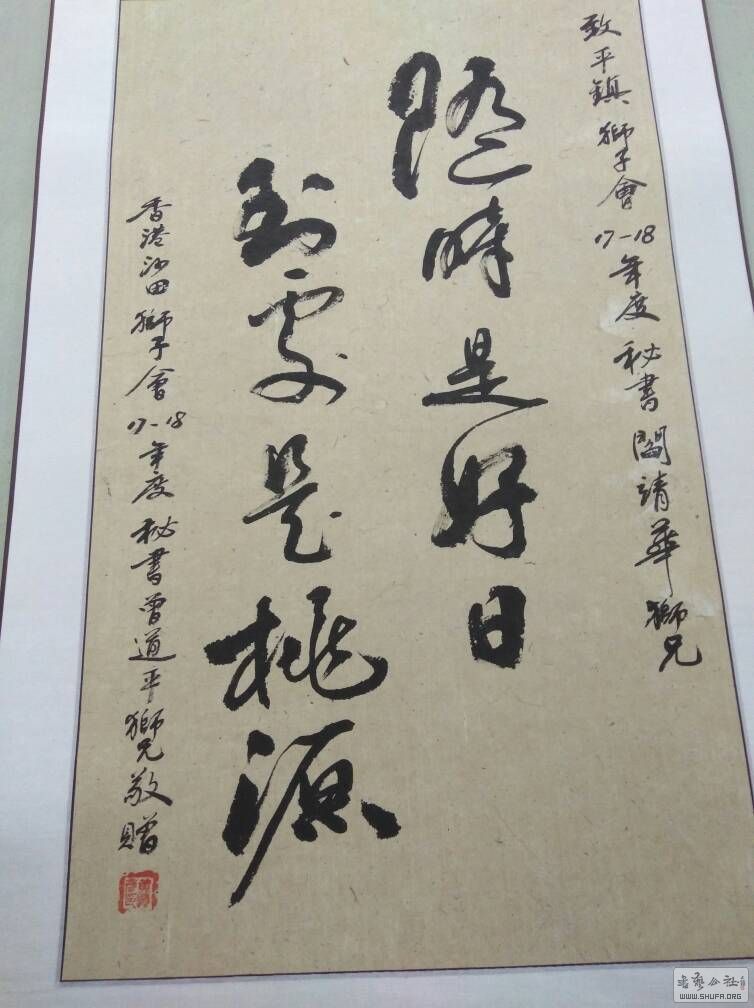 致平鎮獅子會17-18年度秘書閻靖華獅兄
隨時是好日
到處是桃源
香港沙田獅子會17-18年度秘書曾道平獅兄敬贈
书艺公社
WWW.SHUFA.ORG